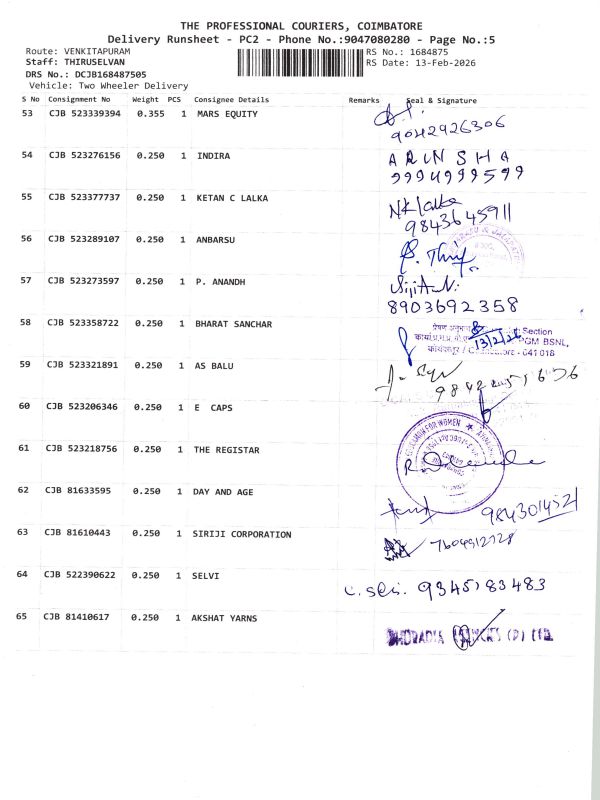 THE PROFESSIONAL COURIERS, COIMBATORE
Delivery Runsheet - PC2 - Phone No.:9047080280 - Page No.:5
Route: VENKITAPURAM
RS No.: 1684875
Staff: THIRUSELVAN
RS Date: 13-Feb-2026
DRS No.: DCJB168487505
Vehicle: Two Wheeler Delivery
S No Consignment No Weight PCS Consignee Details Remarks Seal & Signature
53 CJB 523339394 0.355 1 MARS EQUITY
9042926306
54 CJB 523276156 0.250 1 INDIRA
ARUN SHA
9994999599
55 CJB 523377737 0.250 1 KETAN C LALKA
NK Lalka
9843645911
56 CJB 523289107 0.250 1 ANBARSU
57 CJB 523273597 0.250 1 P. ANANDH
8903692358
58 CJB 523358722 0.250 1 BHARAT SANCHAR
Section
13/2/26
PGM BSNL,
641 018
59 CJB 523321891 0.250 1 AS BALU
60 CJB 523206346 0.250 1 E CAPS
61 CJB 523218756 0.250 1 THE REGISTAR
FOR WOMEN
62 CJB 81633595 0.250 1 DAY AND AGE
9843014521
63 CJB 81610443 0.250 1 SIRIJI CORPORATION
64 CJB 522390622 0.250 1 SELVI
9345183483
65 CJB 81410617 0.250 1 AKSHAT YARNS
(P) LTD.